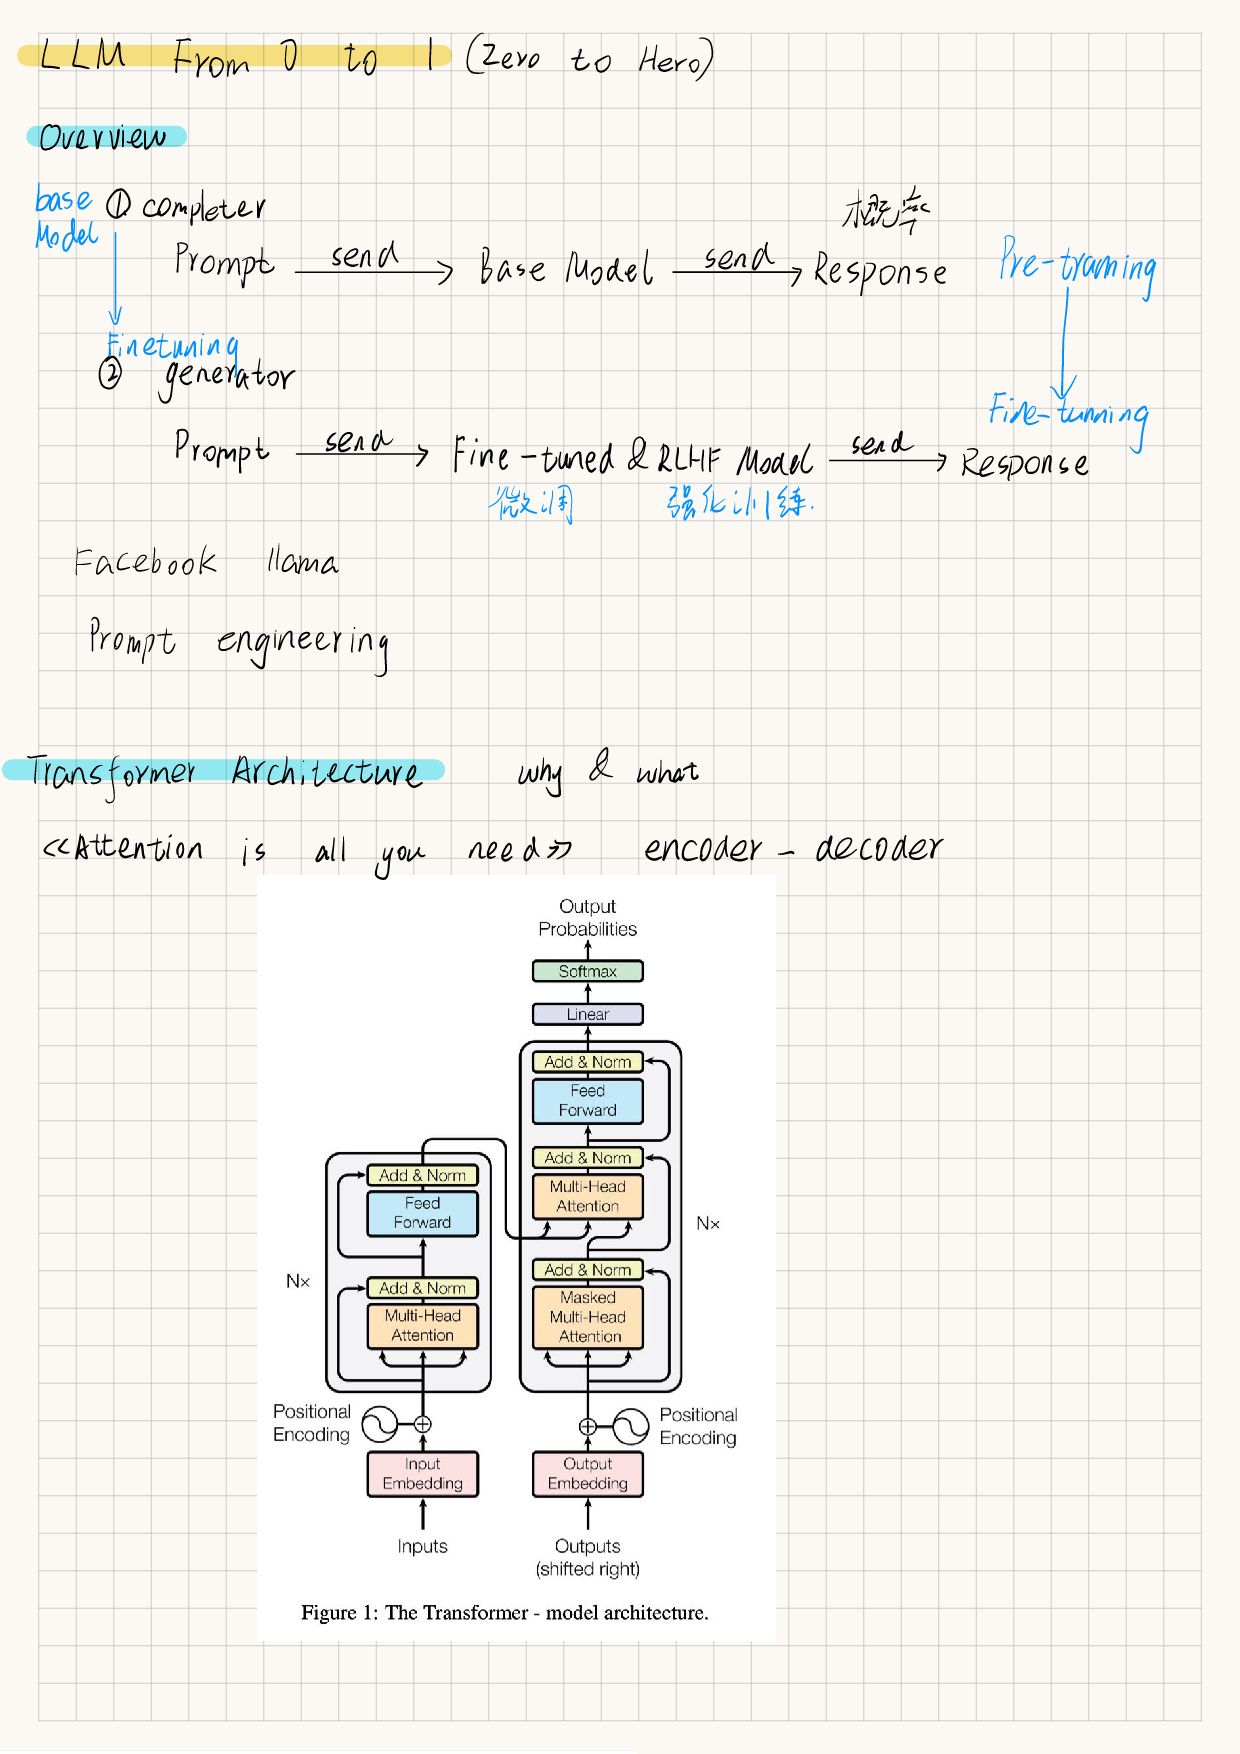 LLM From 0 to 1 (Zero to Hero)
Overview
base Model
① completer
概率
Prompt send Base Model send Response
Pre-traning
Finetuning
② generator
Fine-tunning
Prompt send Fine-tuned & RLHF Model send Response
微调 强化训练.
Facebook llama
Prompt engineering
Transformer Architecture why & what
<<Attention is all you need>> encoder - decoder
Output
Probabilities
Softmax
Linear
Add & Norm
Feed
Forward
Add & Norm
Multi-Head
Attention
Nx
Add & Norm
Masked
Multi-Head
Attention
Add & Norm
Feed
Forward
Nx
Add & Norm
Multi-Head
Attention
Positional
Encoding
Positional
Encoding
Input
Embedding
Output
Embedding
Inputs
Outputs
(shifted right)
Figure 1: The Transformer - model architecture.